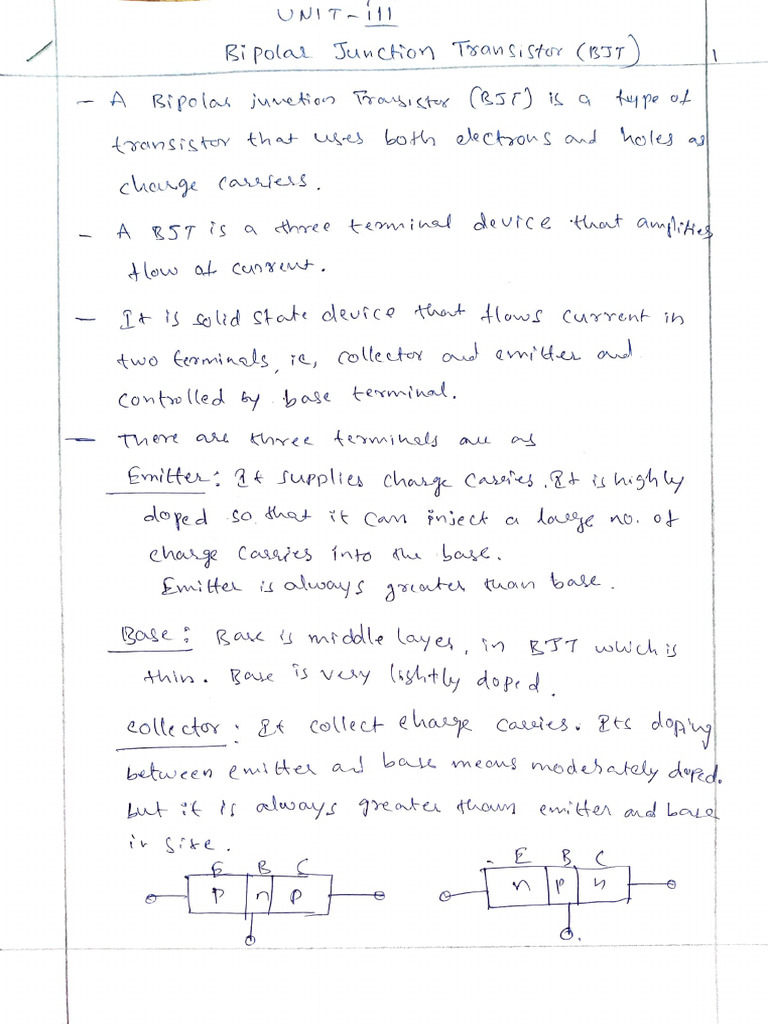 UNIT-III
Bipolar Junction Transistor (BJT) 1
- A Bipolar junction Transistor (BJT) is a type of
transistor that uses both electrons and holes as
charge carriers.
- A BJT is a three terminal device that amplifies
flow of current.
- It is solid state device that flows current in
two terminals, ie, collector and emitter and
controlled by base terminal.
- There are three terminals are as
Emitter: It supplies charge carries. It is highly
doped so that it can inject a large no. of
charge carries into the base.
Emitter is always greater than base.
Base: Base is middle layer, in BJT which is
thin. Base is very lightly doped.
collector: It collect charge carries. Its doping
between emitter and base means moderately doped.
but it is always greater tham emitter and base
in size.
E B C E B C
p n p n p n